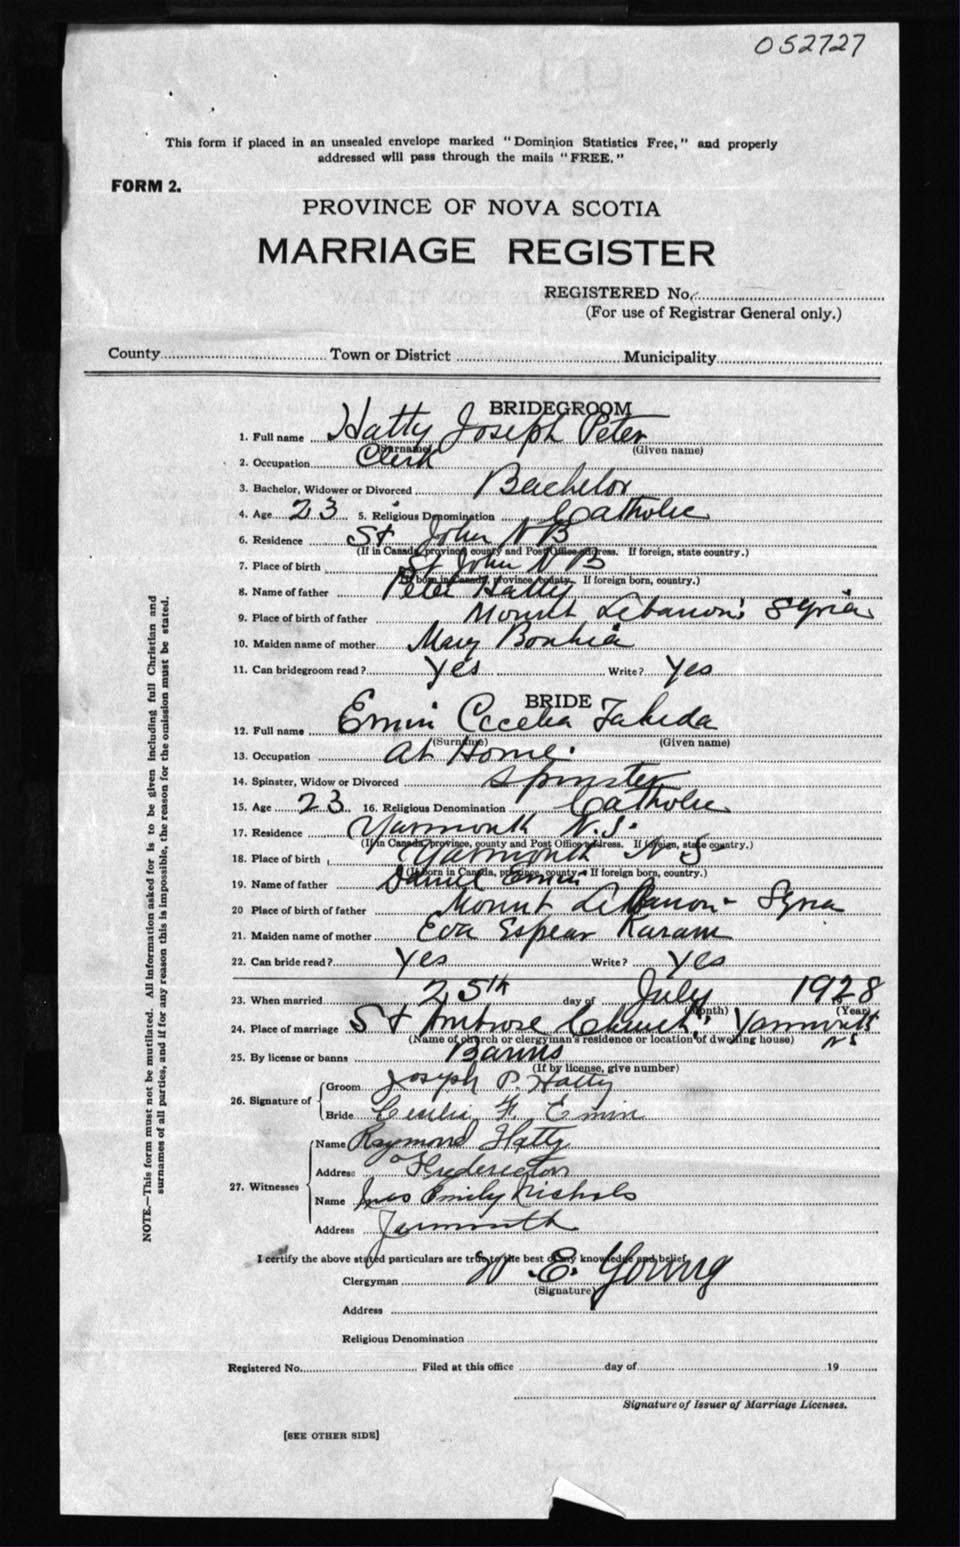 052727
This form if placed in an unsealed envelope marked "Dominion Statistics Free," and properly
addressed will pass through the mails "FREE."
FORM 2.
PROVINCE OF NOVA SCOTIA
MARRIAGE REGISTER
REGISTERED No.
(For use of Registrar General only.)
County Town or District Municipality
BRIDEGROOM
1. Full name Hatty Joseph Peter
(Surname) (Given name)
2. Occupation Clerk
3. Bachelor, Widower or Divorced Bachelor
4. Age 23 5. Religious Denomination Catholic
6. Residence St John N B
(If in Canada, province, county and Post Office address. If foreign, state country.)
7. Place of birth St John N B
(If born in Canada, province, county. If foreign born, country.)
8. Name of father Peter Hatty
9. Place of birth of father Mount Lebanon Syria
10. Maiden name of mother Mary
11. Can bridegroom read? Yes Write? Yes
BRIDE
12. Full name Emin Cecelia
(Surname) (Given name)
13. Occupation At Home
14. Spinster, Widow or Divorced Spinster
15. Age 23 16. Religious Denomination Catholic
17. Residence Yarmouth N.S.
(If in Canada, province, county and Post Office address. If foreign, state country.)
18. Place of birth Yarmouth N S
(If born in Canada, province, county. If foreign born, country.)
19. Name of father Daniel Emin
20 Place of birth of father Mount Lebanon - Syria
21. Maiden name of mother Eva Espear Karam
22. Can bride read? Yes Write? Yes
23. When married 25th day of July 1928
(Month) (Year)
24. Place of marriage St Ambrose Church, Yarmouth
(Name of church or clergyman's residence or location of dwelling house) NS
25. By license or banns Banns
(If by license, give number)
26. Signature of
Groom Joseph P. Hatty
Bride Cecilia F. Emin
27. Witnesses
Name Raymond Hatty
Address Fredericton
Name Emily Nichols
Address Yarmouth
I certify the above stated particulars are true to the best of my knowledge and belief.
Clergyman W E. Young
(Signature)
Address
Religious Denomination
Registered No. Filed at this office day of 19
Signature of Issuer of Marriage Licenses.
[SEE OTHER SIDE]
NOTE.—This form must not be mutilated. All information asked for is to be given including full Christian and
surnames of all parties, and if for any reason this is impossible, the reason for the omission must be stated.